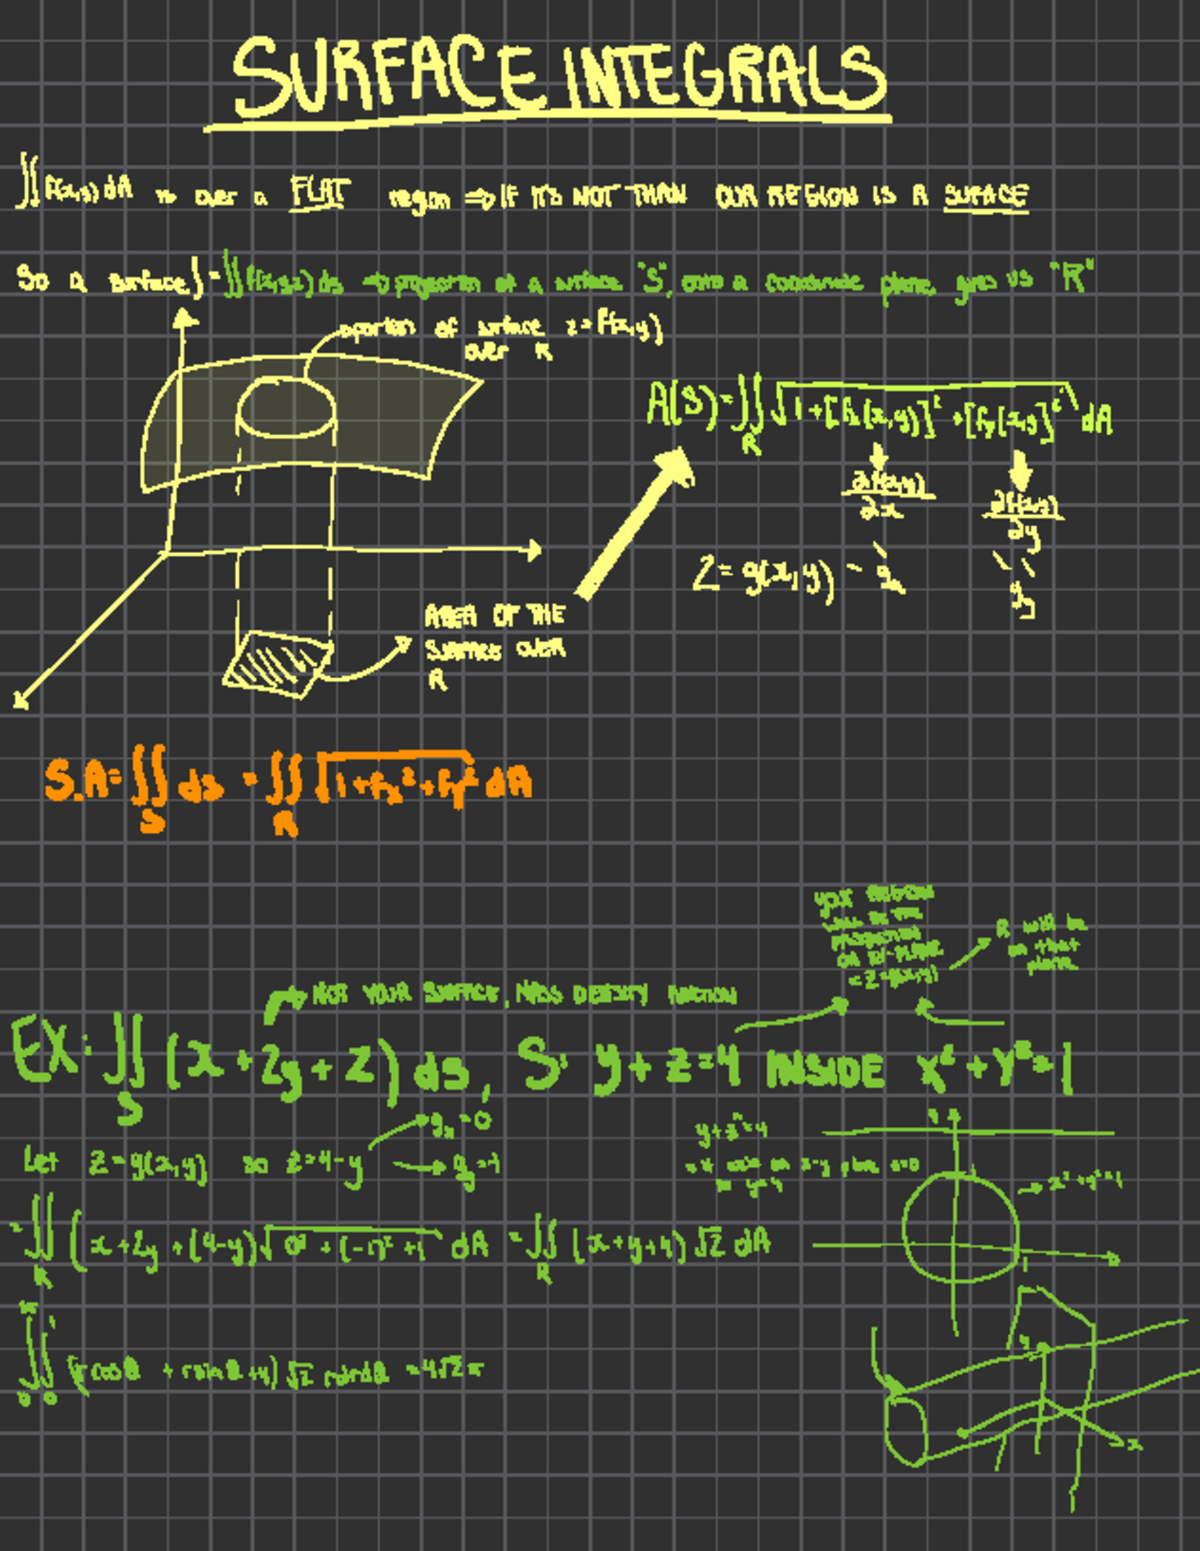 SURFACE INTEGRALS
∬f(x,y)dA → over a FLAT region ⇒ IF IT'S NOT THAN OUR REGION IS A SURFACE
So a surface ∫ = ∬f(x,y,z)ds → projection of a surface "S", onto a coordinate plane, gives us "R"
portion of surface z=f(x,y)
over R
A(S)=∬_R √(1+[fx(x,y)]²+[fy(x,y)]²) dA
∂f(x,y)/∂x
∂f(x,y)/∂y
Z=g(x,y) - gx
gy
AREA OF THE
SURFACE OVER
R
S.A=∬_S ds = ∬_R √(1+fx²+fy²) dA
REGION
WILL BE THE
PROJECTION
ON
=Z=f(x,y)
R will be
on that
plane
NOT YOUR SURFACE, MASS DENSITY FUNCTION
EX: ∬_S (x+2y+z) ds, S: y+z=4 INSIDE x²+y²=1
gx=0
Let z=g(x,y) so z=4-y
gy=-1
y+z=4
x²+y²=1
=∬_R (x+2y+(4-y)√(0²+(-1)²+1) dA = ∬_R (x+y+4)√2 dA
∫∫ (rcosθ + rsinθ+4)√2 rdrdθ = 4√2π
x